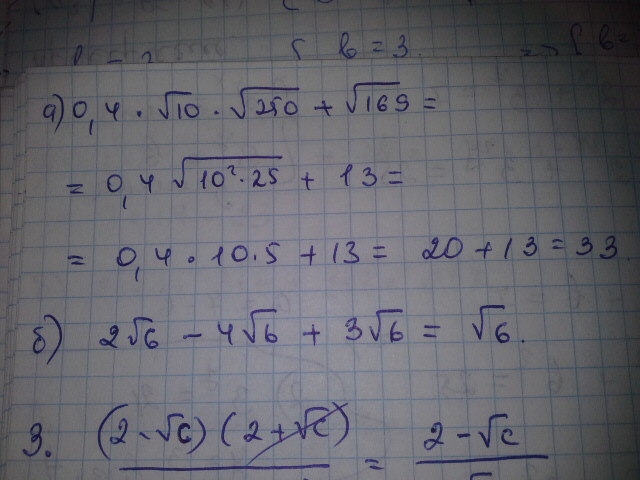 { b = 3 => { b =
а) 0,4 · √10 · √250 + √169 =
= 0,4 √10²·25 + 13 =
= 0,4 · 10·5 + 13 = 20 + 13 = 33
б) 2√6 - 4√6 + 3√6 = √6.
3. (2-√c)(2+√c) = 2-√c